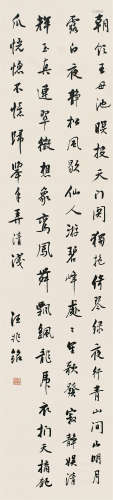 朝飲王母池暝投天門關獨抱綺琴綠夜行青山間山明月
露白夜靜松風歇仙人游碧峰處處笙歌發寂靜娛清
輝玉真連翠微想象鸞鳳舞飄颻龍虎衣捫天摘匏
瓜恍惚不憶歸舉手弄清淺
汪兆銘